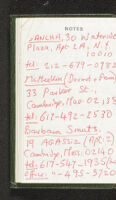 NOTES
SANCHA, 30 Waterside
Plaza, Apt 2A, N.Y
10010
tel: 212-679-0788
McMeekin (Dorset + Pam)
33 Parker St.,
Cambridge, Mas. 02138
tel: 617-492-2530
Barbara Smuts,
19 AGASSIZ (Apt. 2)
Cambridge, Mass. 02140
tel: 617-547-1935
office: "-495-3720